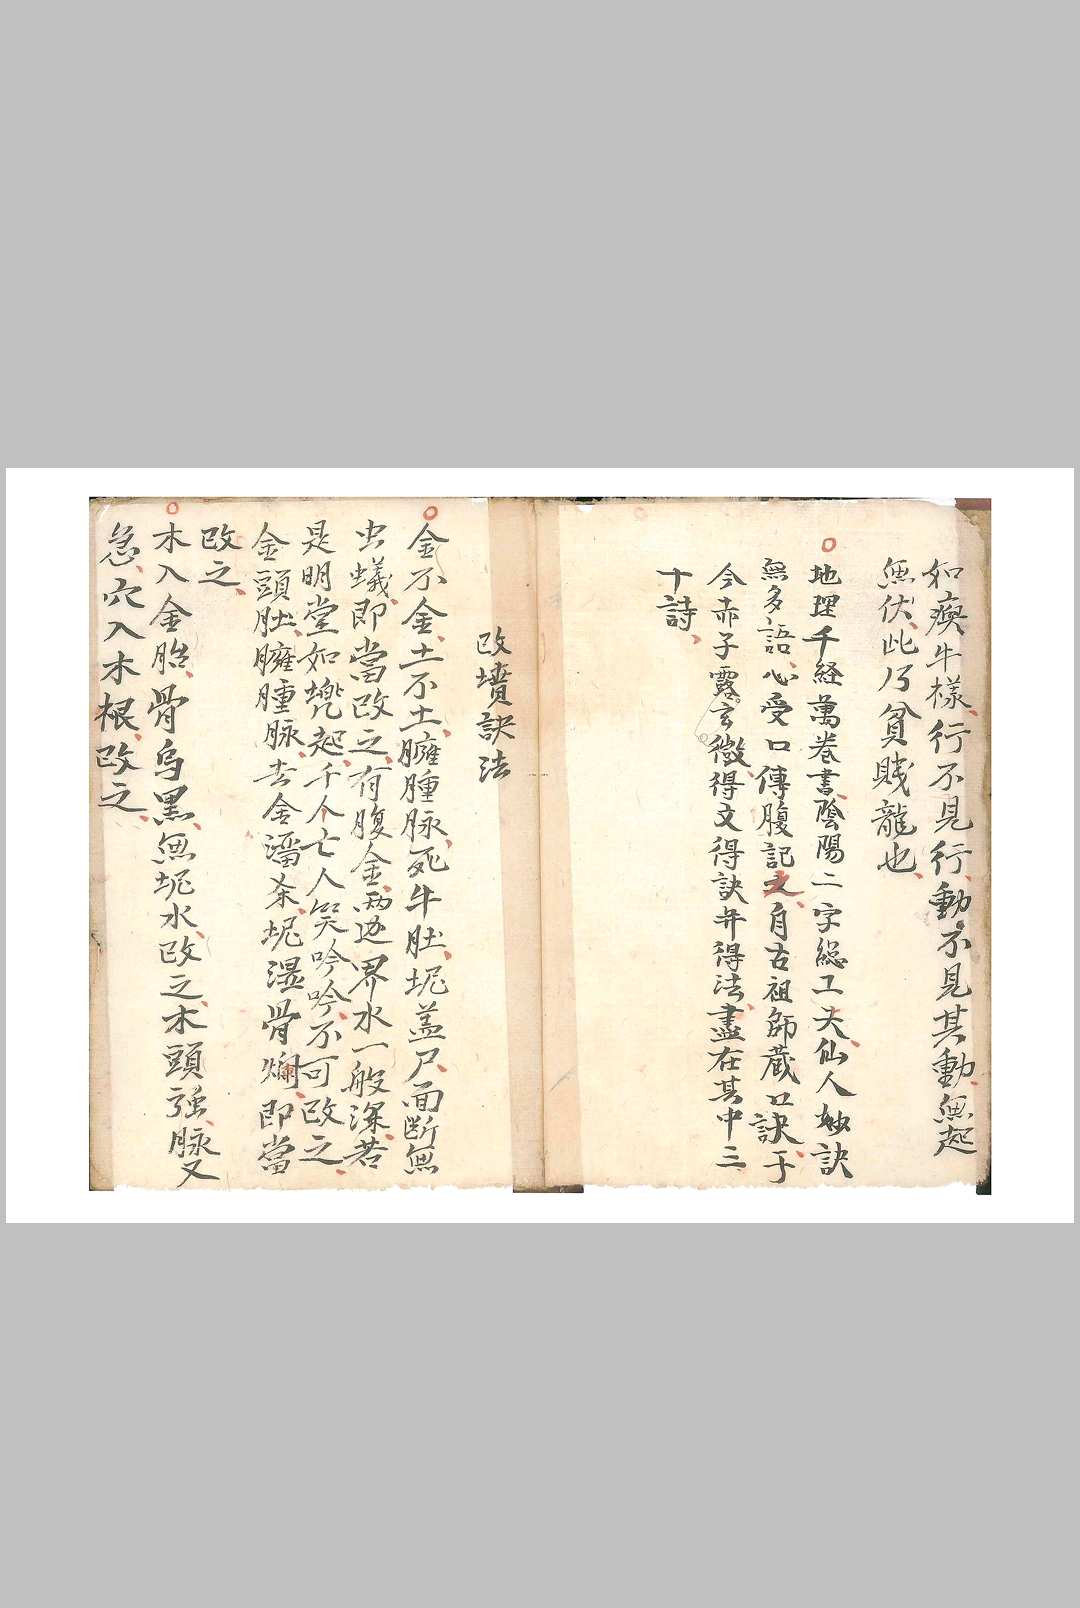 如瘓牛樣行不見行動不見其動無起
無伏此乃貧賤龍也
地理千経萬卷書陰陽二字総工夫仙人妙訣
無多語心受口傳腹記之自古祖師蔵口訣于
今赤子露玄微得文得訣并得法盡在其中三
十詩
改墳訣法
金不金土不土臃腫脉死牛肚坭盖尸面断無
虫蟻即當改之有腹金两边界水一般深若
是明堂如㙋起千人亡人笑吟吟不可改之
金頭肚臃腫脉去金濳杀坭濕骨爛即當
改之
木入金胎骨烏黑無坭水改之木頭強脉又
急穴入木根改之